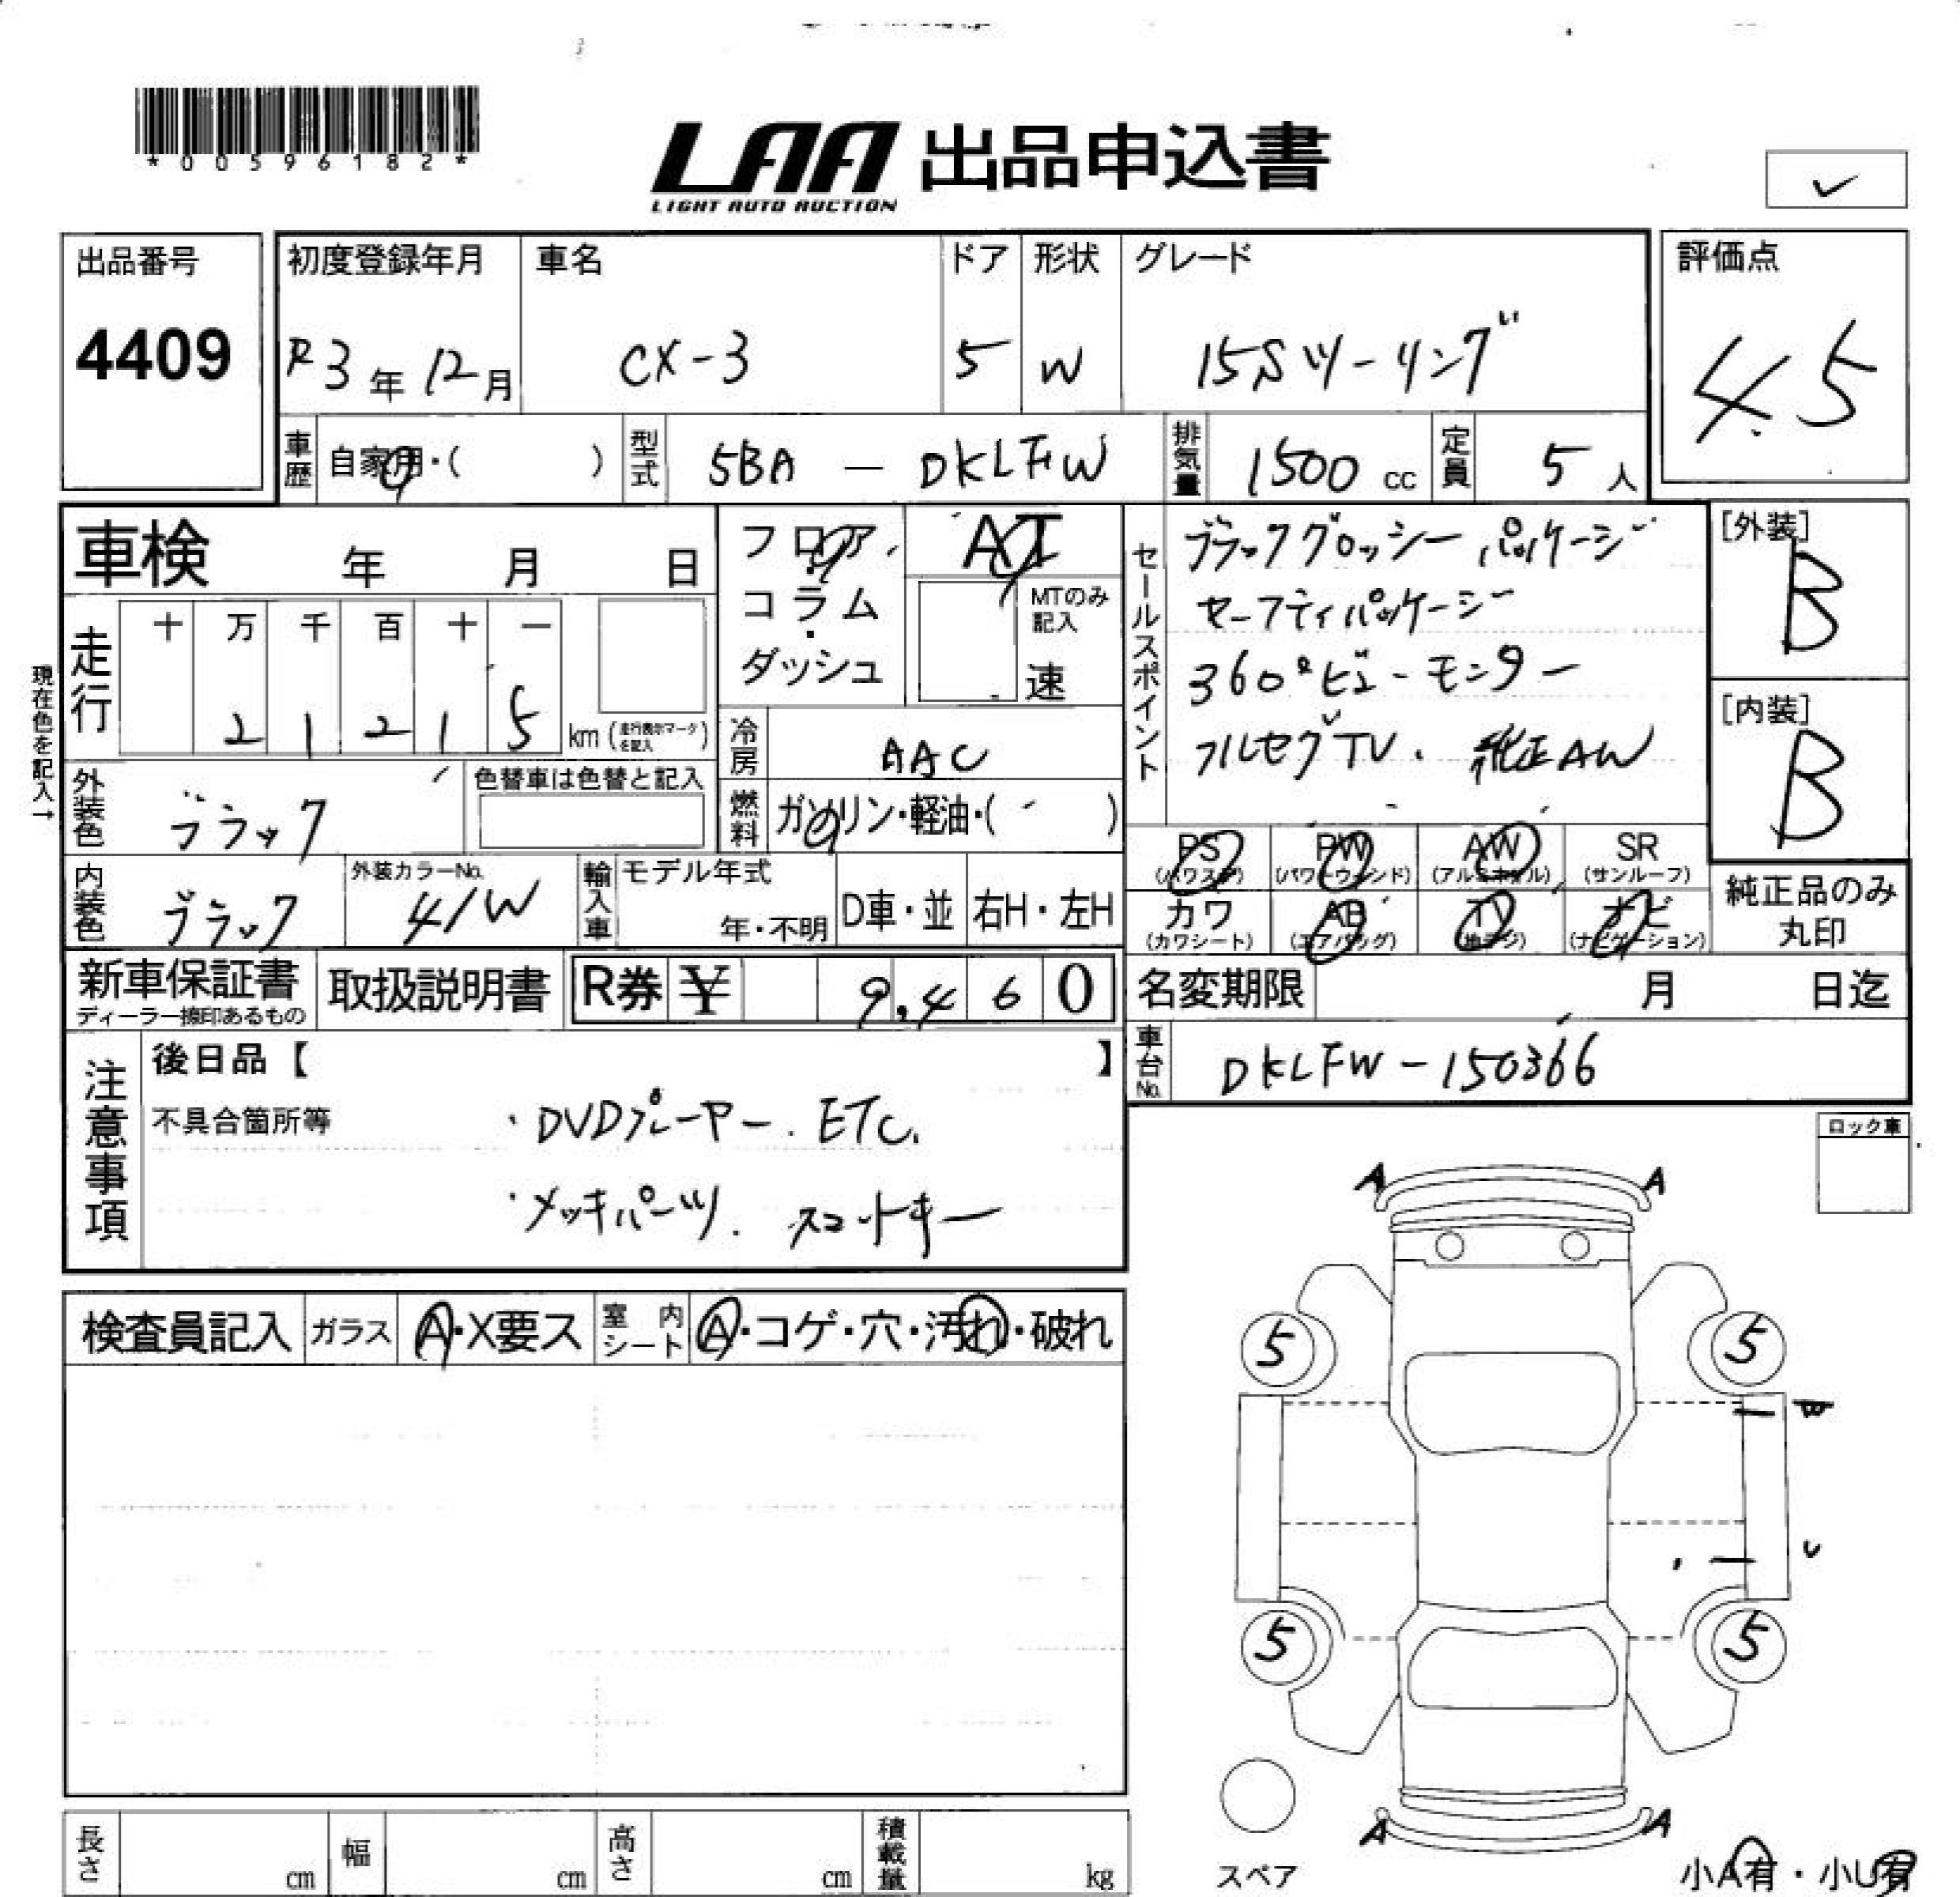 *00596182*
LAA 出品申込書
LIGHT AUTO AUCTION
✓
出品番号
4409
初度登録年月
R3年12月
車名
CX-3
ドア
5
形状
W
グレード
15Sツーリング
評価点
4.5
車歴
自家用・( )
型式
5BA — DKLFW
排気量
1500 cc
定員
5人
車検 年 月 日
フロア・コラム・ダッシュ
AT
MTのみ記入
速
セールスポイント
ブラックグロッシーパッケージ
セーフティパッケージ
360°ビューモニター
フルセグTV. 純正AW
[外装]
B
[内装]
B
現在色を記入→
走行
十 万 千 百 十 一
2 1 2 1 5 km (走行表示マークを記入)
冷房
AAC
外装色
ブラック
色替車は色替と記入
燃料
ガソリン・軽油・( )
内装色
ブラック
外装カラーNo.
41W
輸入車
モデル年式
年・不明
D車・並
右H・左H
PS
(パワステ)
PW
(パワーウィンド)
AW
(アルミホイル)
SR
(サンルーフ)
カワ
(カワシート)
AB
(エアバッグ)
TV
(地デジ)
ナビ
(ナビゲーション)
純正品のみ丸印
新車保証書
ディーラー捺印あるもの
取扱説明書
R券 ¥ 9,460
名変期限 月 日迄
車台No.
DKLFW-150366
注意事項
後日品【 】
不具合箇所等
・DVDプレーヤー. ETC.
・メッキパーツ. スマートキー
ロック車
検査員記入
ガラス
A・X要ス
室内シート
A・コゲ・穴・汚れ・破れ
A A
5 5
W
U
5 5
A A
スペア
小A有・小U有
長さ cm
幅 cm
高さ cm
積載量 kg